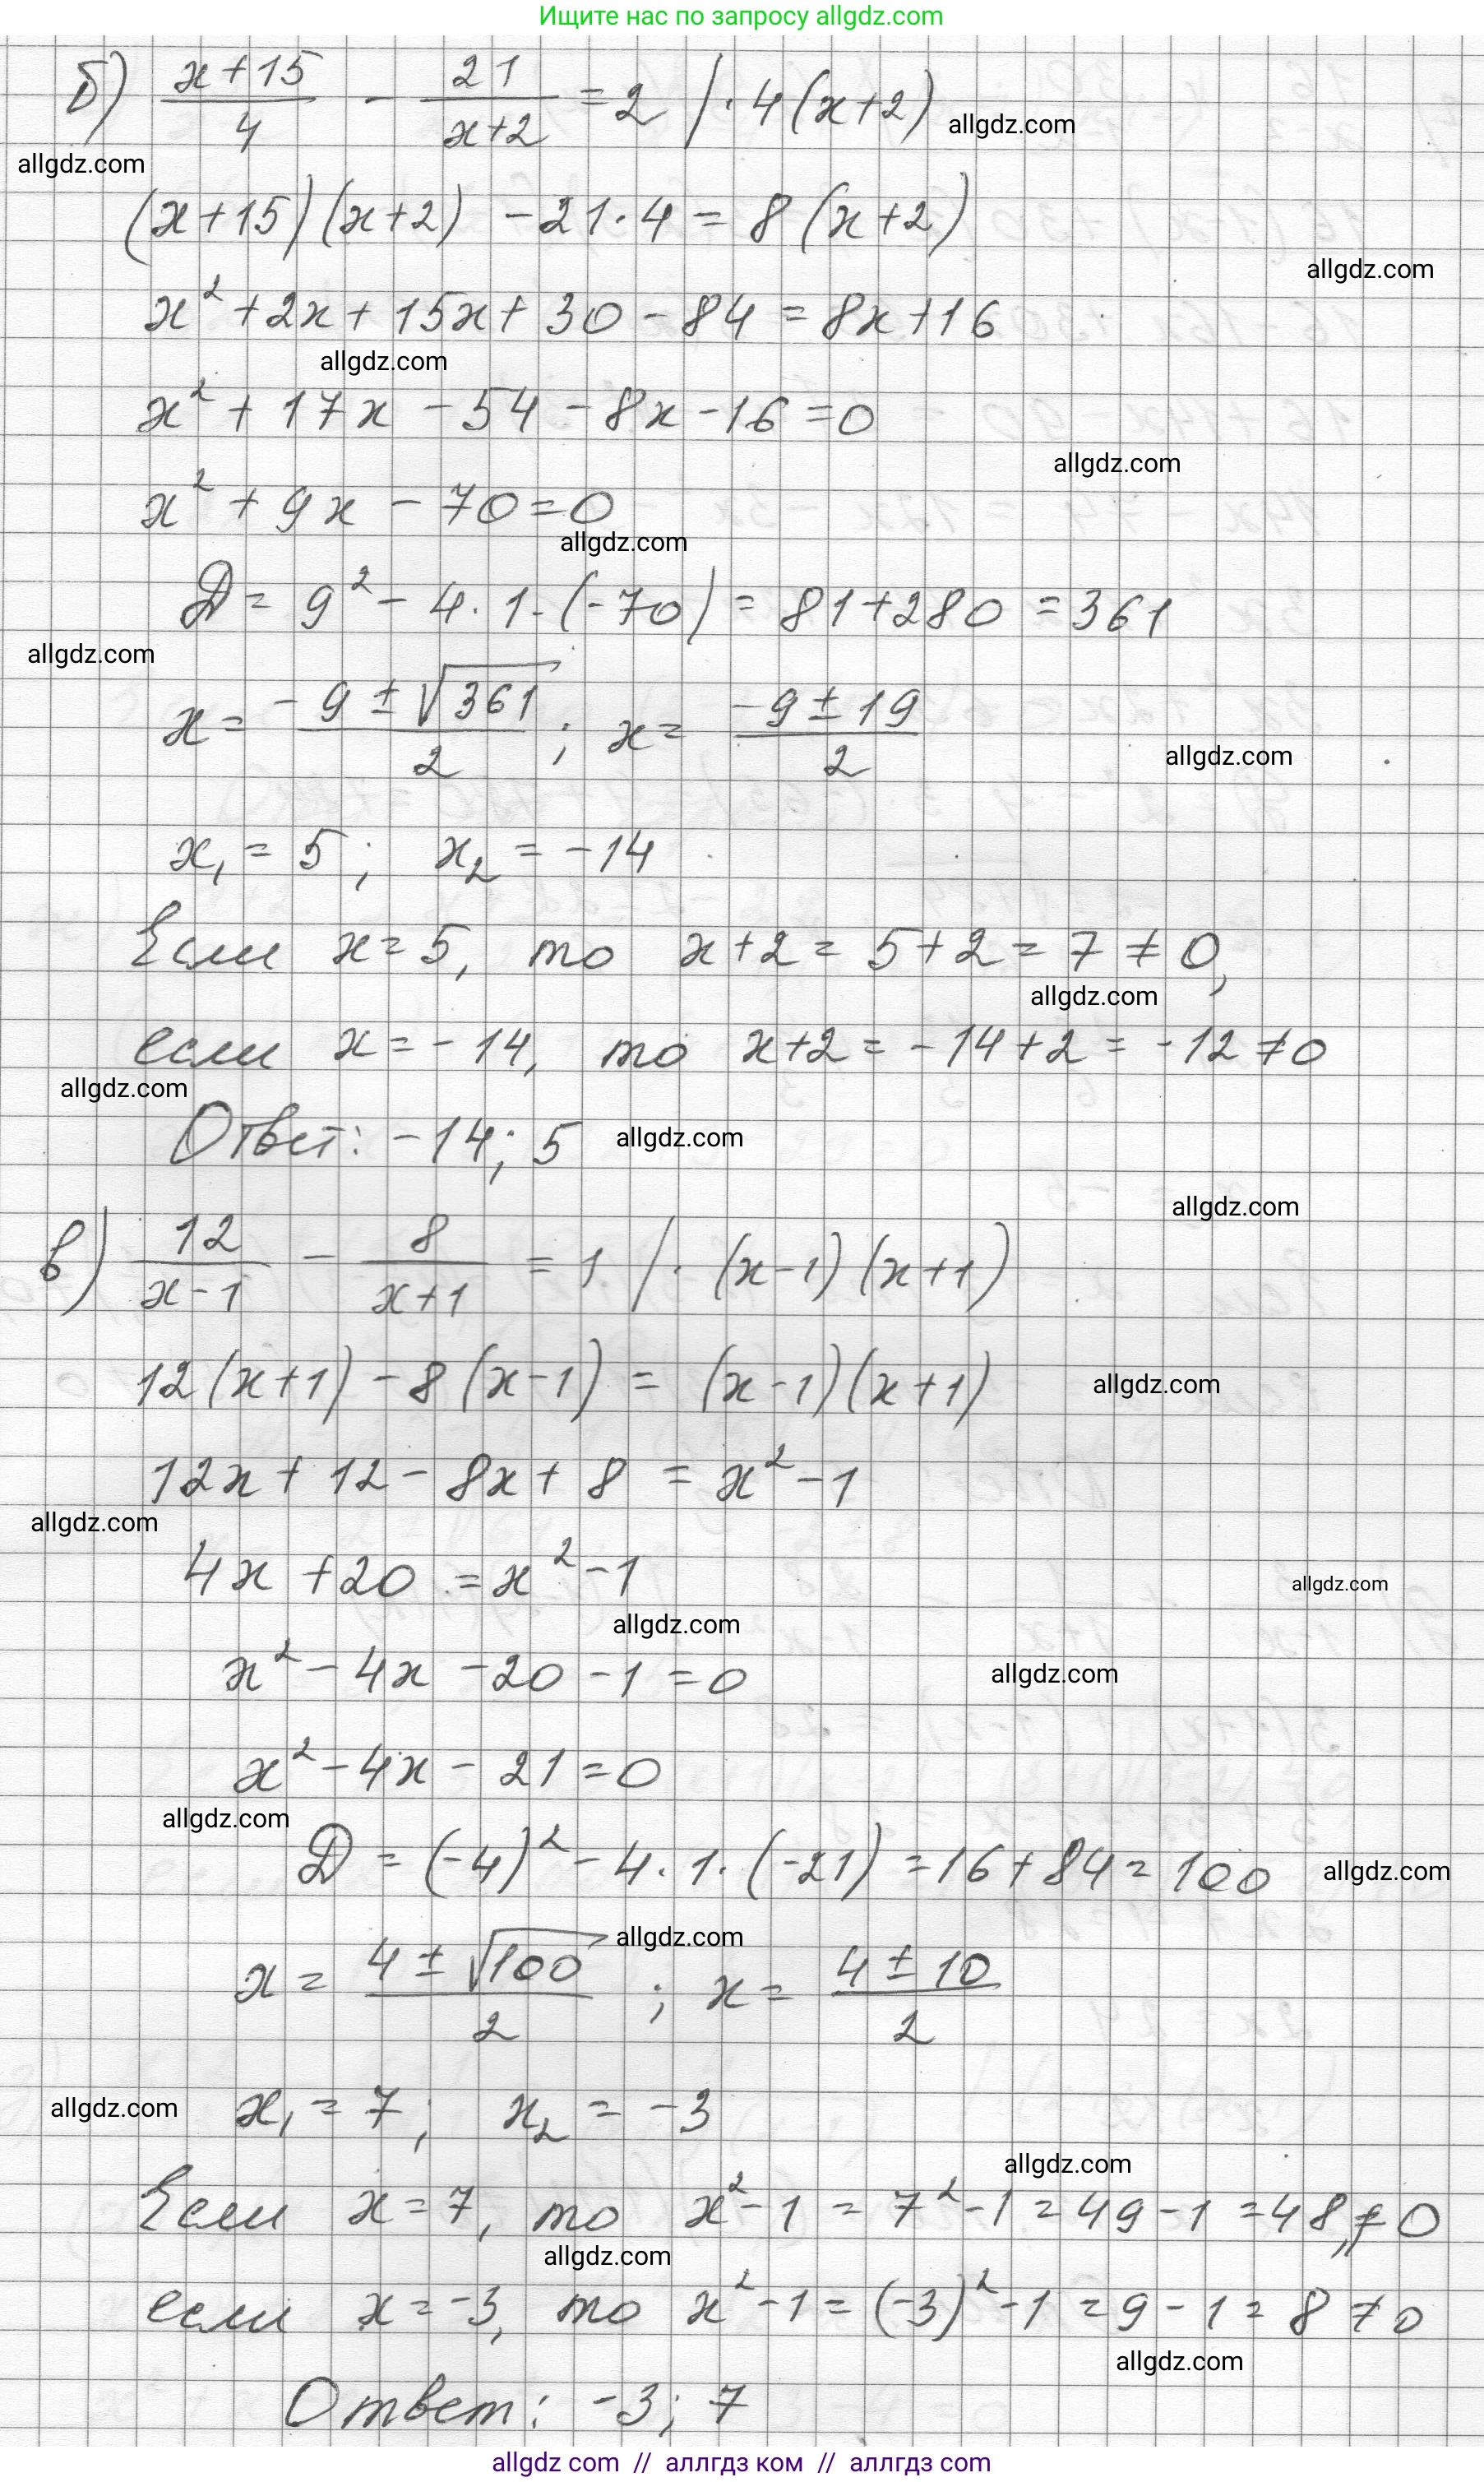 Ищите нас по запросу allgdz.com
б) (x+15)/4 - 21/(x+2) = 2 | · 4(x+2)
allgdz.com
allgdz.com
(x+15)(x+2) - 21·4 = 8(x+2)
allgdz.com
x² + 2x + 15x + 30 - 84 = 8x + 16
allgdz.com
x² + 17x - 54 - 8x - 16 = 0
allgdz.com
x² + 9x - 70 = 0
allgdz.com
D = 9² - 4·1·(-70) = 81 + 280 = 361
allgdz.com
x = (-9 ± √361)/2 ; x = (-9 ± 19)/2
allgdz.com
x₁ = 5 ; x₂ = -14
Если x = 5, то x+2 = 5+2 = 7 ≠ 0,
allgdz.com
если x = -14, то x+2 = -14+2 = -12 ≠ 0
allgdz.com
Ответ: -14; 5
allgdz.com
allgdz.com
в) 12/(x-1) - 8/(x+1) = 1 | · (x-1)(x+1)
12(x+1) - 8(x-1) = (x-1)(x+1)
allgdz.com
12x + 12 - 8x + 8 = x² - 1
allgdz.com
4x + 20 = x² - 1
allgdz.com
allgdz.com
x² - 4x - 20 - 1 = 0
allgdz.com
x² - 4x - 21 = 0
allgdz.com
D = (-4)² - 4·1·(-21) = 16 + 84 = 100
allgdz.com
allgdz.com
x = (4 ± √100)/2 ; x = (4 ± 10)/2
x₁ = 7; x₂ = -3
allgdz.com
allgdz.com
Если x = 7, то x² - 1 = 7² - 1 = 49 - 1 = 48 ≠ 0,
allgdz.com
если x = -3, то x² - 1 = (-3)² - 1 = 9 - 1 = 8 ≠ 0
allgdz.com
Ответ: -3; 7
allgdz com // аллгдз ком // аллгдз com